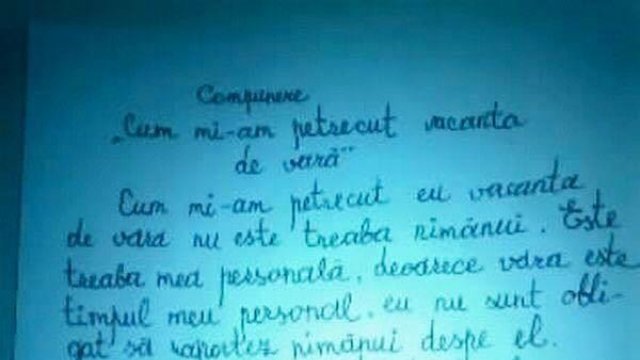 Compunere
„Cum mi-am petrecut vacanta
de vară”
Cum mi-am petrecut eu vacanta
de vara nu este treaba nimănui. Este
treaba mea personală, deoarece vara este
timpul meu personal, eu nu sunt obli-
gat să raportez nimănui despe el.